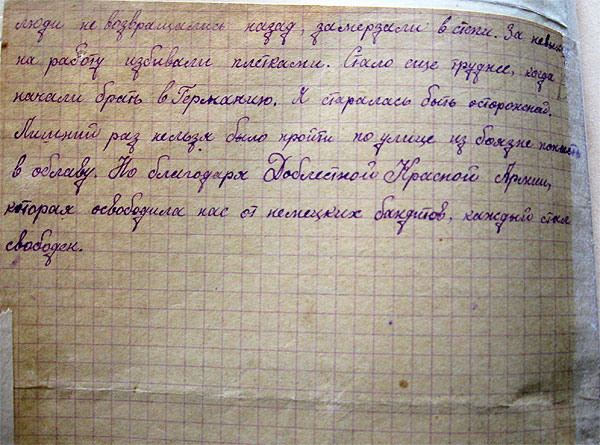 люди не возвращались назад, замерзали в степи. За невыход
на работу избивали плетками. Стало еще труднее, когда
начали брать в Германию. Я старалась быть осторожной.
Лишний раз нельзя было пройти по улице из боязне попасть
в облаву. Но благодаря Доблестной Красной Армии,
которая освободила нас от немецких бандитов, каждый стал
свободен.